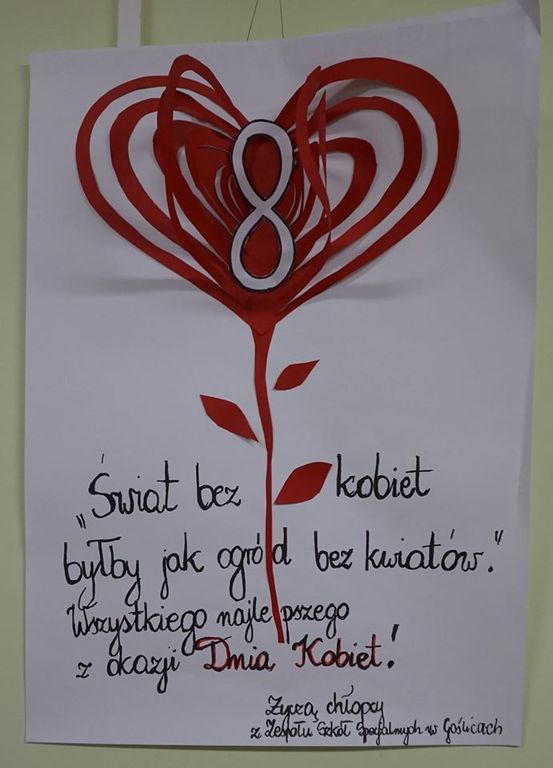 8
„Świat bez kobiet
byłby jak ogród bez kwiatów."
Wszystkiego najlepszego
z okazji Dnia Kobiet!
Życzą chłopcy
z Zespołu Szkół Specjalnych w Goślicach